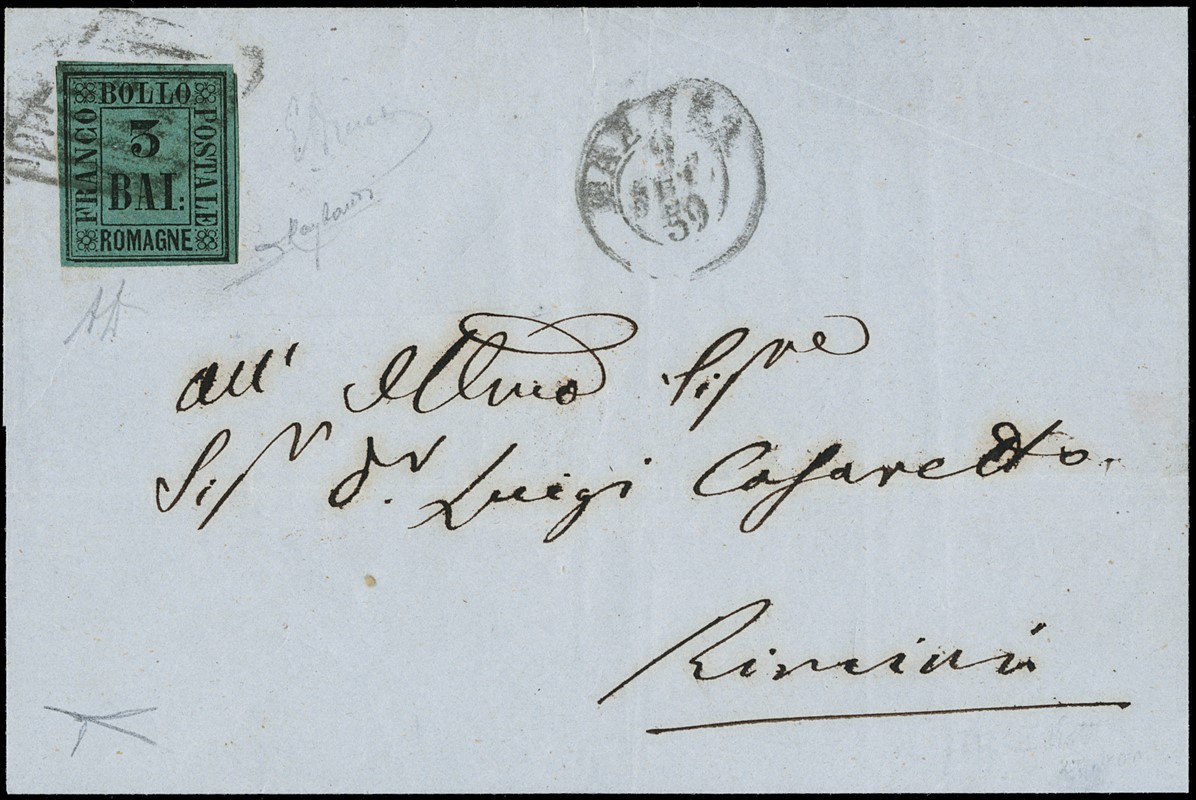 BOLLO
FRANCO
3
BAI:
POSTALE
ROMAGNE
SET
59
all' Illmo Sigre
Sigr Dr. Luigi Casaretto.
Rimini